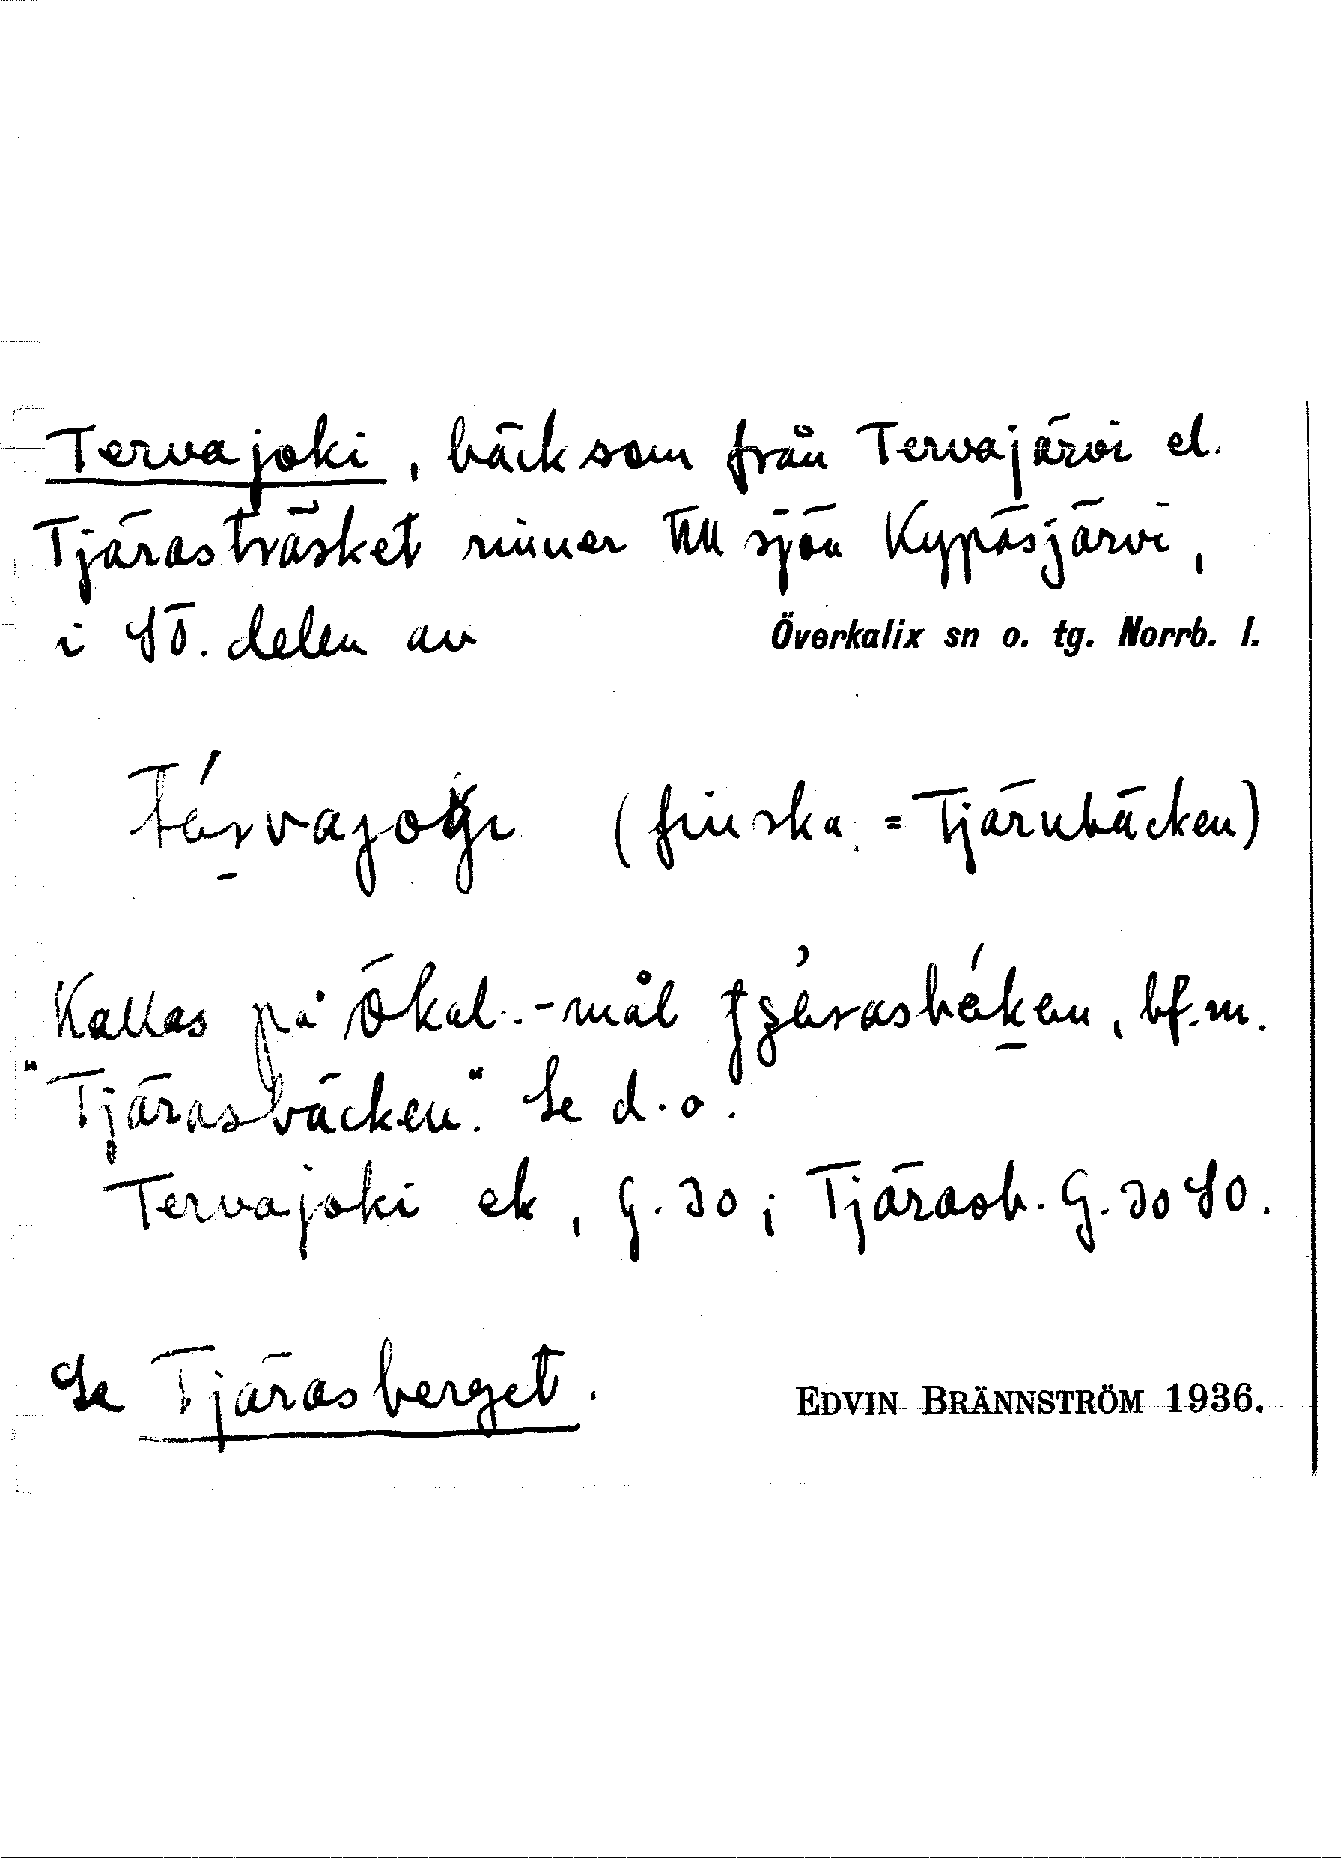 Tervajoki, bäck som från Tervajärvi el.
Tjärasträsket rinner till sjön Kypäsjärvi,
i SÖ. delen av Överkalix sn o. tg. Norrb. l.
(finska = Tjärnbäcken)
Kallas på Ökal.-mål bf. m.
"Tjärasbäcken". Se d. o.
Tervajoki ek, G. 30; Tjärasb. G. 30 SO.
Se Tjärasberget.
EDVIN BRÄNNSTRÖM 1936.